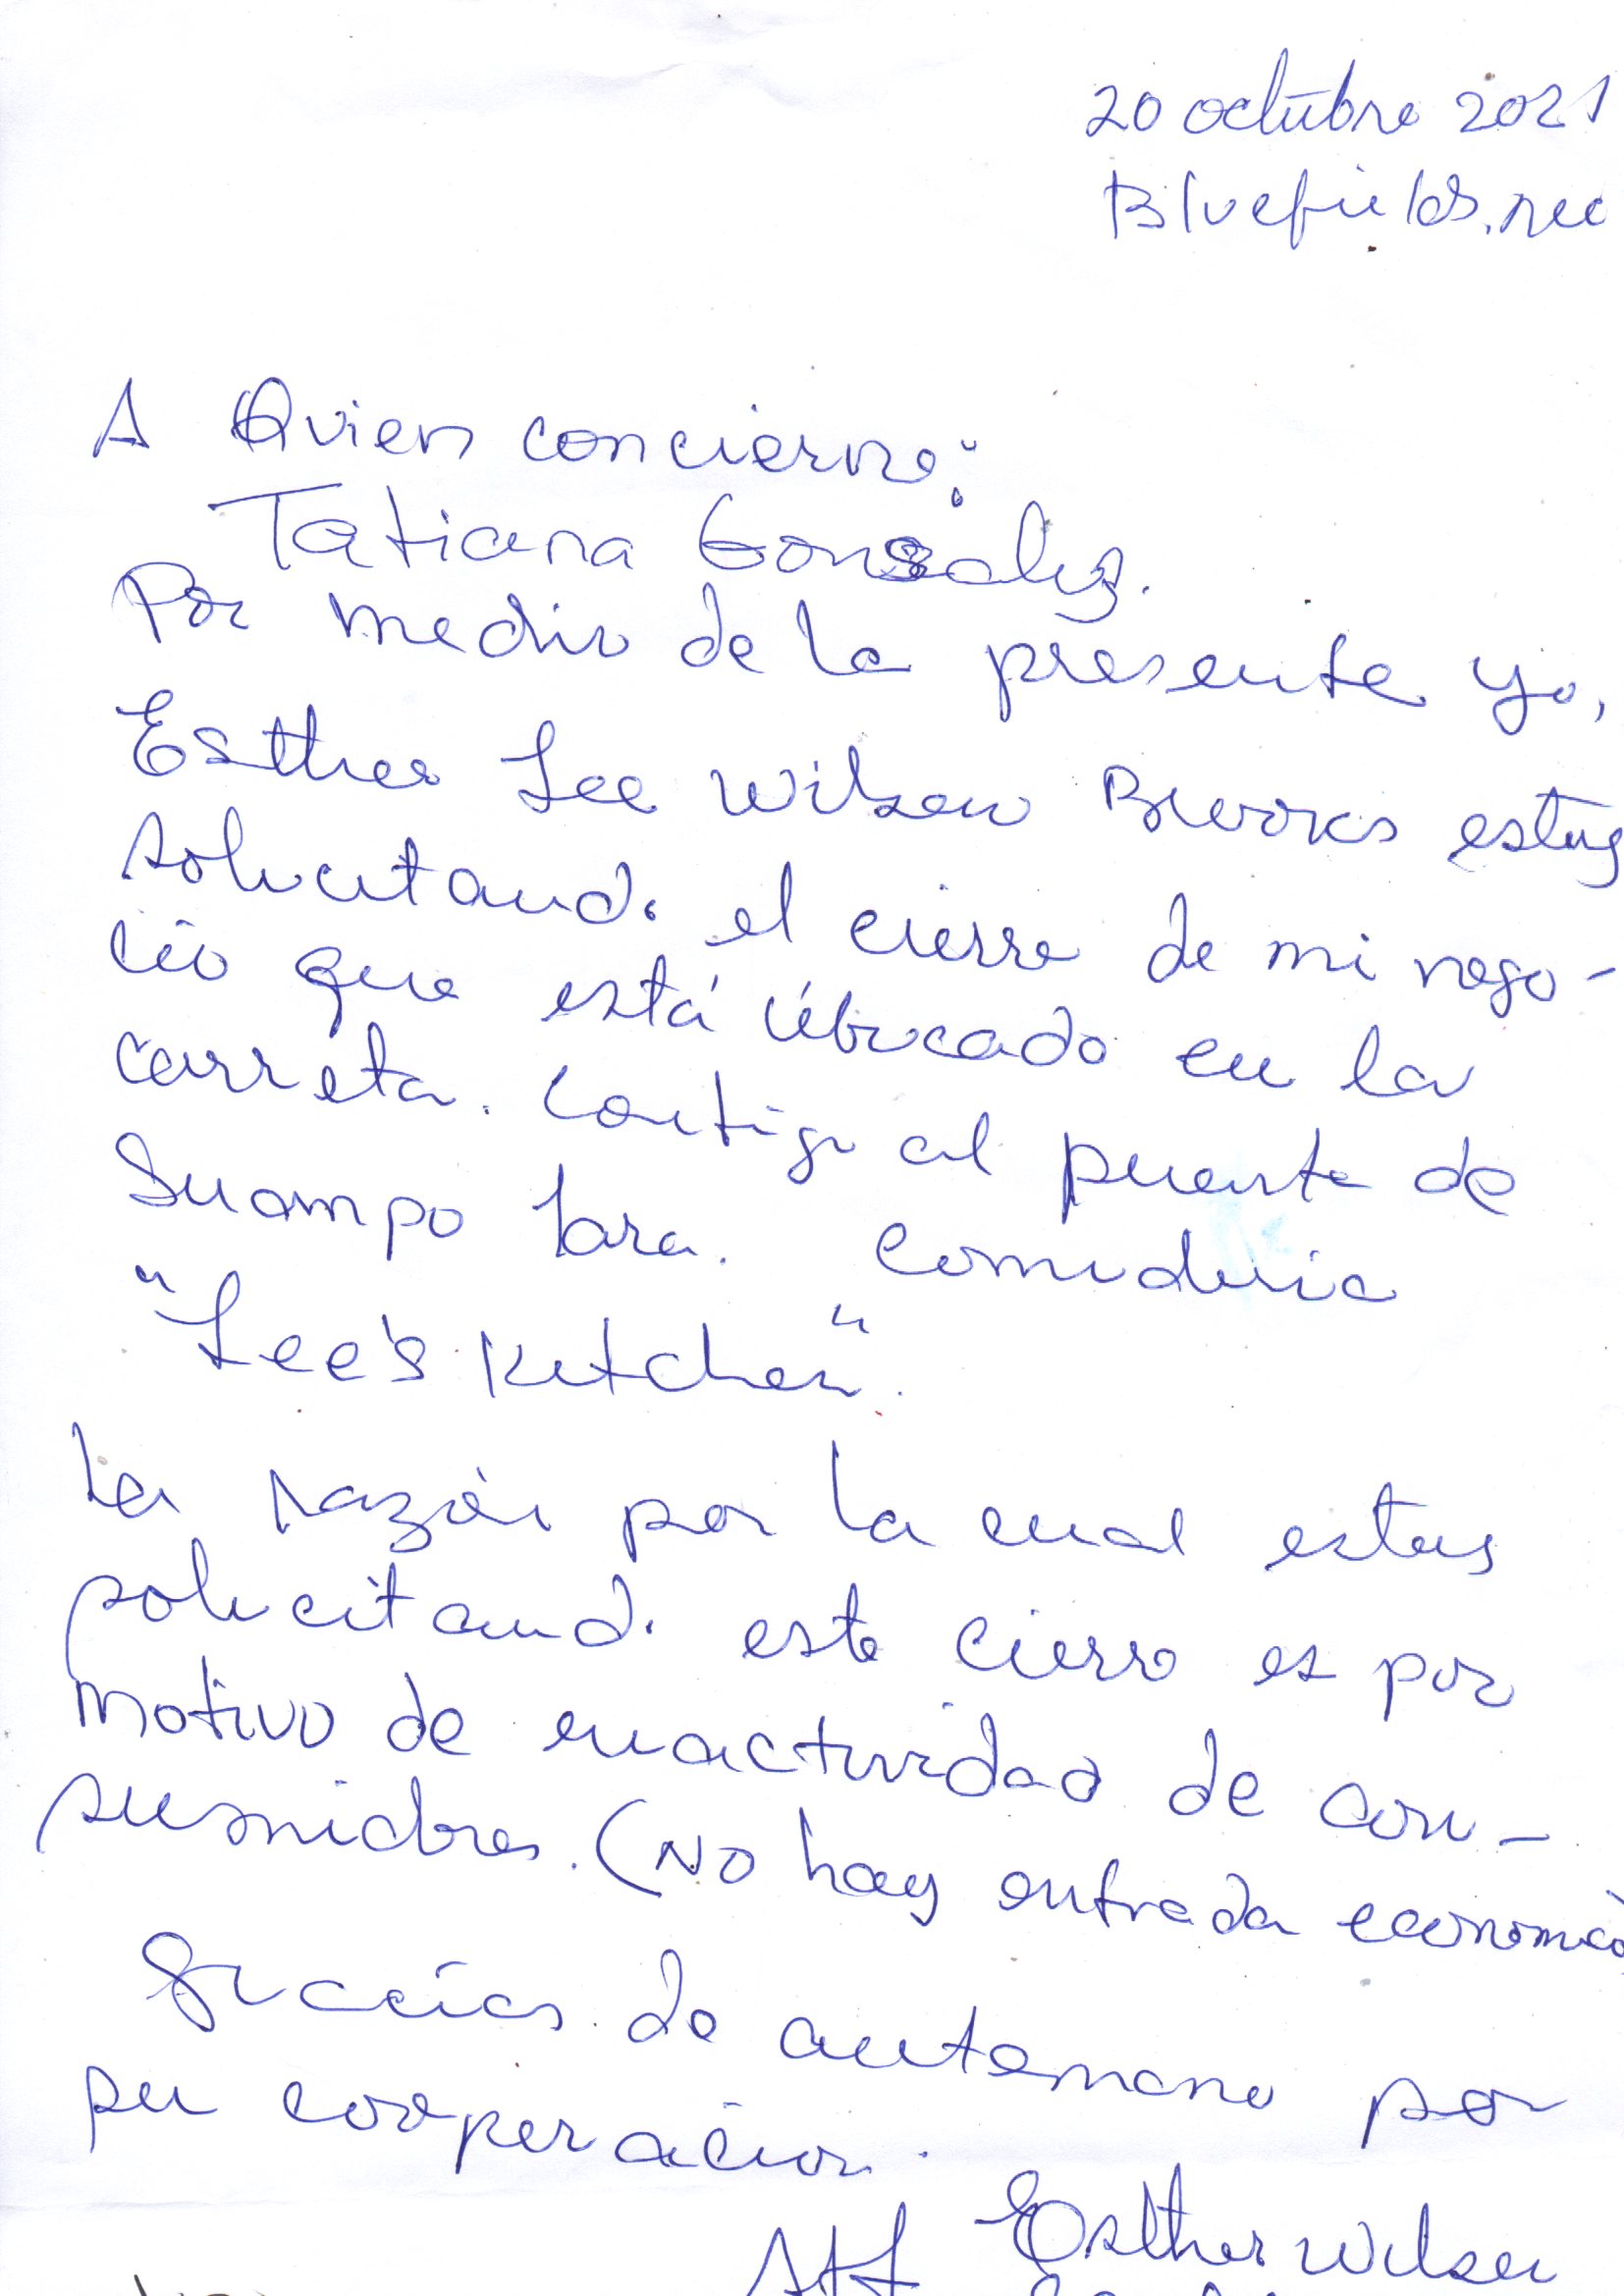 20 octubre 2021
Bluefields, nic
A Quien concierne:
Tatiana Gonzalez.
Por medio de la presente yo,
Esther Lee Wilson Brooks estoy
solicitando el cierre de mi nego-
cio que está úbicado en la
carreta. Contigo al puente de
Suampo Lara. Comideria
"Lee's Kitchen".
La razón por la cual estoy
solicitando este cierre es por
motivo de inactividad de con-
sumidores. (No hay entrada economica
Gracias de antemano por
su cooperacion.
Att Esther Wilson